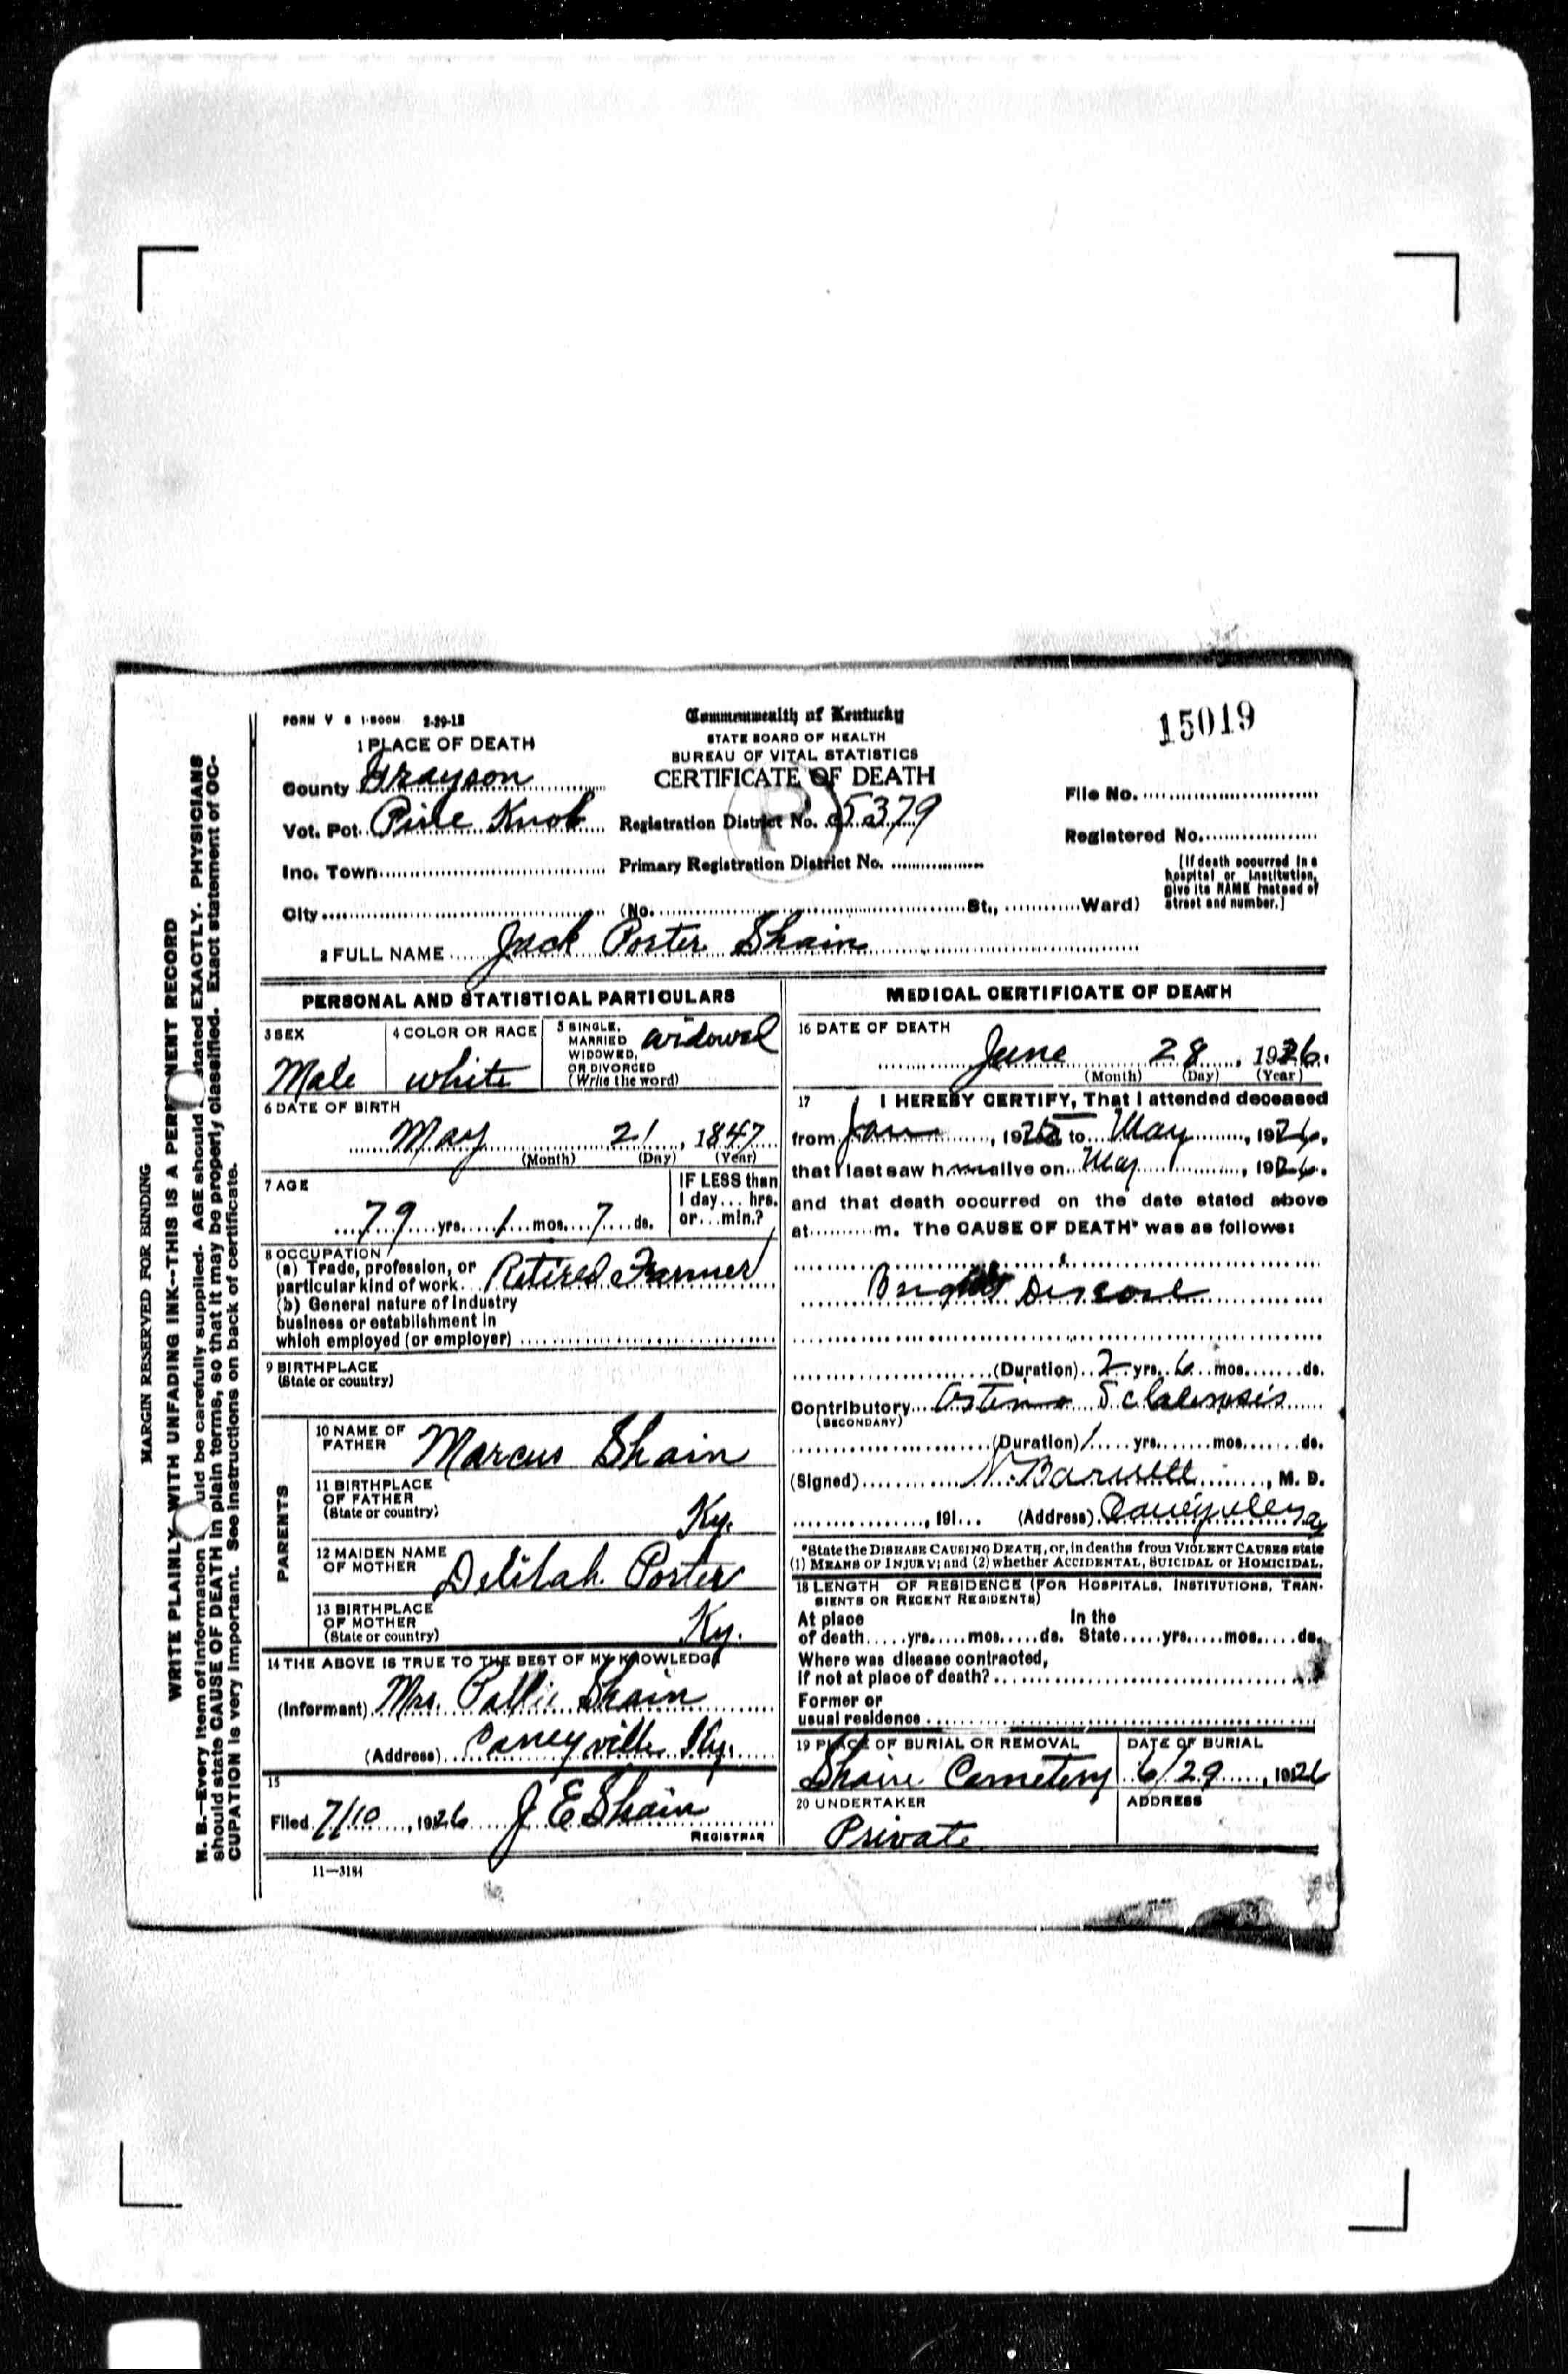 FORM V S 1-500M 2-29-12
Commonwealth of Kentucky
STATE BOARD OF HEALTH
BUREAU OF VITAL STATISTICS
CERTIFICATE OF DEATH
15019
1 PLACE OF DEATH
County Grayson
Vot. Pct. Pine Knob
Inc. Town
City (No. St., Ward)
Registration District No. 5379
Primary Registration District No.
File No.
Registered No.
[If death occurred in a
hospital or institution,
give its NAME instead of
street and number.]
2 FULL NAME Jack Porter Shain
PERSONAL AND STATISTICAL PARTICULARS
3 SEX
Male
4 COLOR OR RACE
white
5 SINGLE,
MARRIED
WIDOWED,
OR DIVORCED
(Write the word)
widowed
6 DATE OF BIRTH
May 21, 1847
(Month) (Day) (Year)
7 AGE
79 yrs. 1 mos. 7 ds.
IF LESS than
1 day... hrs.
or... min.?
8 OCCUPATION
(a) Trade, profession, or
particular kind of work Retired Farmer
(b) General nature of industry
business or establishment in
which employed (or employer)
9 BIRTHPLACE
(State or country)
PARENTS
10 NAME OF
FATHER Marcus Shain
11 BIRTHPLACE
OF FATHER
(State or country) Ky.
12 MAIDEN NAME
OF MOTHER Delilah Porter
13 BIRTHPLACE
OF MOTHER
(State or country) Ky.
14 THE ABOVE IS TRUE TO THE BEST OF MY KNOWLEDGE
(Informant) Mrs. Pallie Shain
(Address) Caneyville Ky.
15
Filed 7/10, 1926 J E Shain
REGISTRAR
11-3184
MEDICAL CERTIFICATE OF DEATH
16 DATE OF DEATH
June 28, 1926.
(Month) (Day) (Year)
17 I HEREBY CERTIFY, That I attended deceased
from Jan, 192 to May, 1926,
that I last saw him alive on May 1, 1926.
and that death occurred on the date stated above
at m. The CAUSE OF DEATH* was as follows:
Brights Disease
(Duration) 2 yrs. 6 mos. ds.
Contributory
(SECONDARY)
(Duration) 1 yrs. mos. ds.
(Signed) N. Barnett, M. D.
, 191 (Address)
*State the DISEASE CAUSING DEATH, or, in deaths from VIOLENT CAUSES state
(1) MEANS OF INJURY; and (2) whether ACCIDENTAL, SUICIDAL or HOMICIDAL.
18 LENGTH OF RESIDENCE (FOR HOSPITALS, INSTITUTIONS, TRAN-
SIENTS OR RECENT RESIDENTS)
At place In the
of death yrs. mos. ds. State yrs. mos. ds.
Where was disease contracted,
If not at place of death?
Former or
usual residence
19 PLACE OF BURIAL OR REMOVAL
Shain Cemetery
DATE OF BURIAL
6/29, 1926
20 UNDERTAKER
Private
ADDRESS
MARGIN RESERVED FOR BINDING
WRITE PLAINLY WITH UNFADING INK--THIS IS A PERMANENT RECORD
N. B.--Every item of information should be carefully supplied. AGE should stated EXACTLY. PHYSICIANS
should state CAUSE OF DEATH in plain terms, so that it may be properly classified. Exact statement of OC-
CUPATION is very important. See instructions on back of certificate.